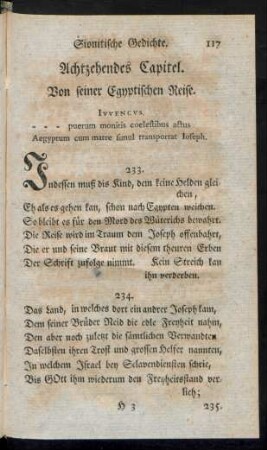 Sionitische Gedichte. 117
Achtzehendes Capitel.
Von seiner Egyptischen Reise.
IVVENCVS.
- - - puerum monitis coelestibus actus
Aegyptum cum matre simul transportat Ioseph.
233.
Indessen muß dis Kind, dem keine Helden glei-
chen,
Eh als es gehen kan, schon nach Egypten weichen.
So bleibt es für den Mord des Wüterichs bewahrt.
Die Reise wird im Traum dem Joseph offenbahrt,
Die er und seine Braut mit diesem theuren Erben
Der Schrift zufolge nimmt. Kein Streich kan
ihn verderben.
234.
Das Land, in welches dort ein andrer Joseph kam,
Dem seiner Brüder Neid die edle Freyheit nahm,
Den aber noch zuletzt die sämtlichen Verwandten
Daselbsten ihren Trost und grossen Helfer nannten,
In welchem Israel bey Sclavendiensten schrie,
Bis GOtt ihm wiederum den Freyheitsstand ver-
lieh;
H 3 235.